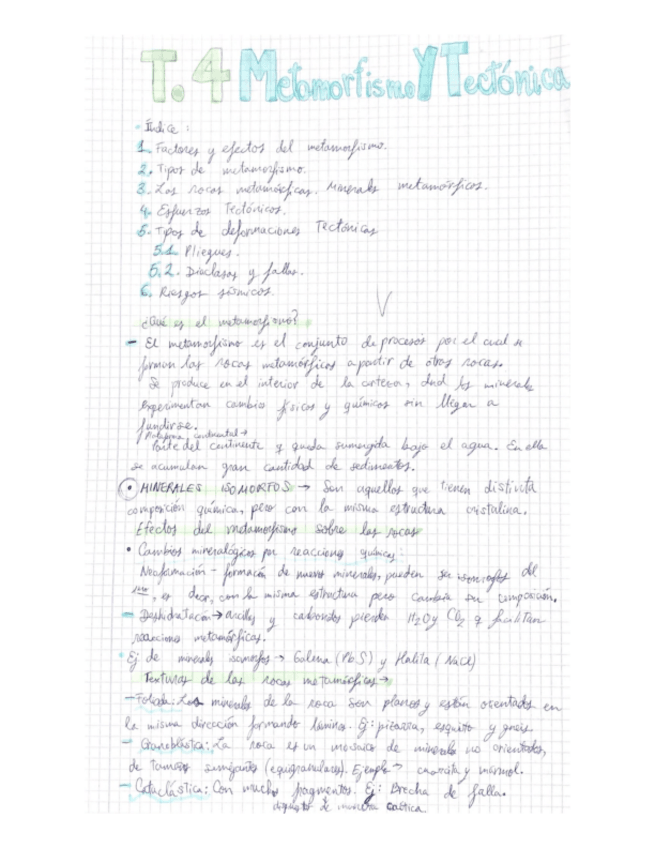 T.4 Metamorfismo Y Tectónica
Índice:
1. Factores y efectos del metamorfismo.
2. Tipos de metamorfismo.
3. Las rocas metamórficas. Minerales metamórficos.
4. Esfuerzos Tectónicos.
5. Tipos de deformaciones Tectónicas
5.1. Pliegues.
5.2. Diaclasas y fallas.
6. Riesgos sísmicos.
¿Qué es el metamorfismo?
- El metamorfismo es el conjunto de procesos por el cual se
forman las rocas metamórficas a partir de otras rocas.
Se produce en el interior de la corteza, los minerales
experimentan cambio físicos y químicos sin llegar a
fundirse.
Plataforma continental →
Parte del continente q queda sumergida bajo el agua. En ella
se acumulan gran cantidad de sedimentos.
• MINERALES ISOMORFOS → Son aquellos que tienen distinta
composición química, pero con la misma estructura cristalina.
Efectos del metamorfismo sobre las rocas
• Cambios mineralógicos por reacciones químicas:
Neoformación - formación de nuevos minerales, pueden ser isomorfos del
, es decir, con la misma estructura pero cambia su composición.
- Deshidratación → arcillas y carbonatos pierden H2O y CO2 q facilitan
reacciones metamórficas.
• Ej de minerales isomorfos → Galena (PbS) y Halita (NaCl)
Texturas de las rocas metamórficas →
- Foliada: Los minerales de la roca son planos y están orientados en
la misma dirección formando láminas. Ej: pizarra, esquito y gneis.
- Granoblástica: La roca es un mosaico de minerales no orientados,
de tamaños semejantes (equigranulares). Ejemplo → cuarcita y marmol.
- Cataclástica: Con muchos fragmentos. Ej: Brecha de falla.
dispuestos de manera caótica.